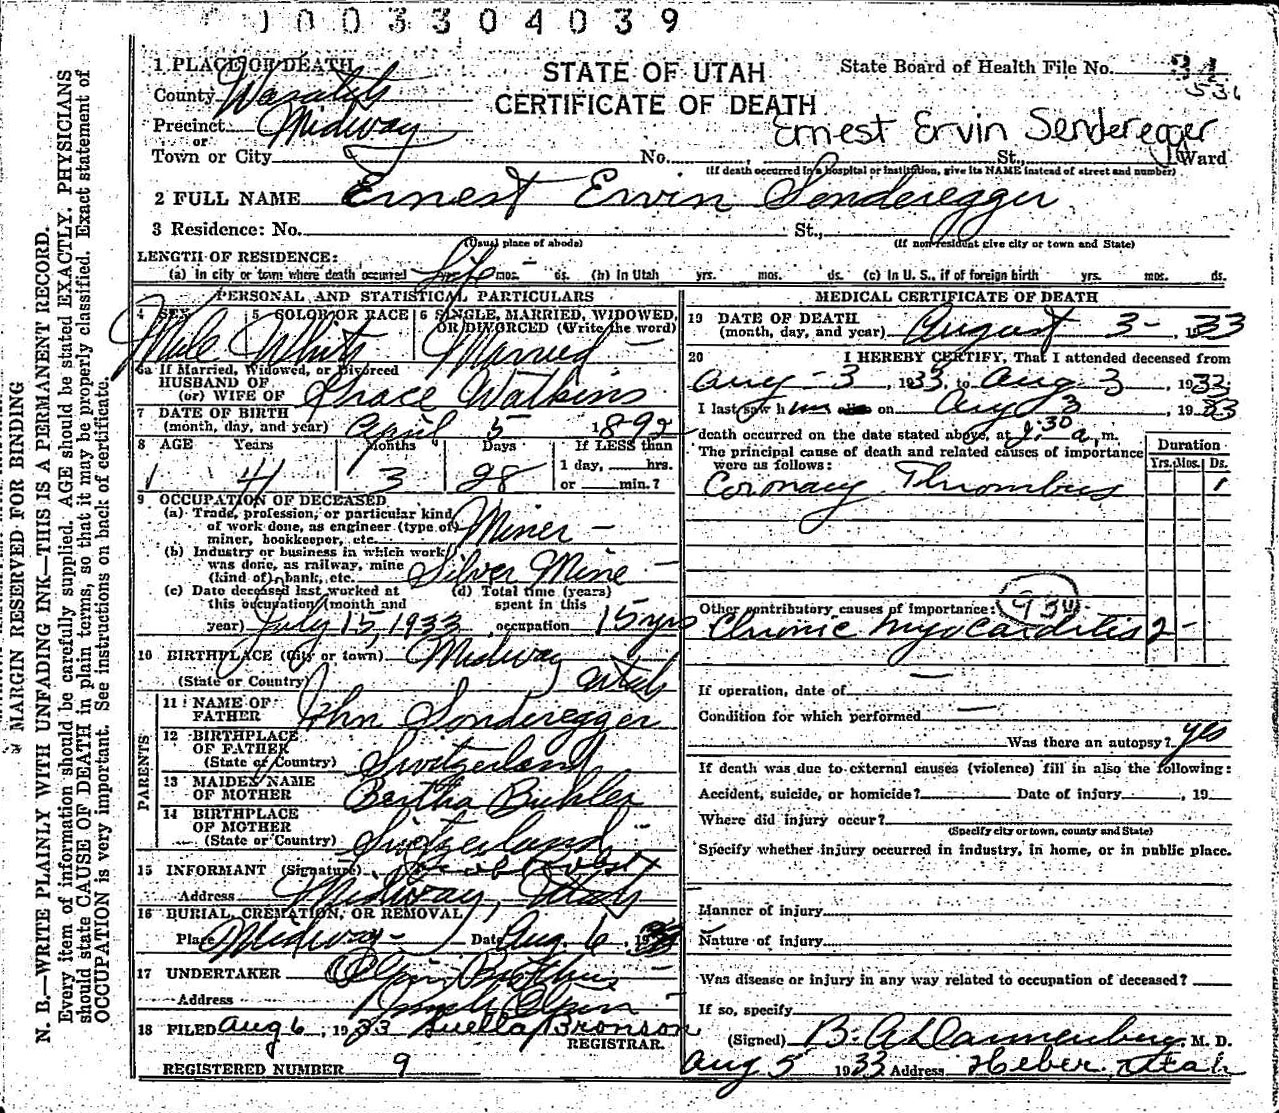 1003304039
1 PLACE OF DEATH
STATE OF UTAH
State Board of Health File No. 34
536
County Wasatch
CERTIFICATE OF DEATH
Precinct Midway
or
Ernest Ervin Senderegger
Town or City No. St., Ward
(If death occurred in a hospital or institution, give its NAME instead of street and number)
2 FULL NAME Ernest Ervin Sonderegger
3 Residence: No. St.,
(Usual place of abode) (If non-resident give city or town and State)
LENGTH OF RESIDENCE:
(a) in city or town where death occurred Life mos. - ds. (b) In Utah yrs. mos. ds. (c) In U. S., if of foreign birth yrs. mos. ds.
PERSONAL AND STATISTICAL PARTICULARS
4 SEX 5 COLOR OR RACE 6 SINGLE, MARRIED, WIDOWED,
OR DIVORCED (Write the word)
Male White Married -
6a If Married, Widowed, or Divorced
HUSBAND OF
(or) WIFE OF Grace Watkins
7 DATE OF BIRTH
(month, day, and year) April 5 1892
8 AGE Years Months Days If LESS than
1 day, hrs.
or min.?
41 3 28
9 OCCUPATION OF DECEASED
(a) Trade, profession, or particular kind
of work done, as engineer (type of)
miner, bookkeeper, etc. Miner -
(b) Industry or business in which work
was done, as railway, mine
(kind of), bank, etc. Silver Mine -
(c) Date deceased last worked at
this occupation (month and
year) July 15, 1933
(d) Total time (years)
spent in this
occupation 15 yrs
10 BIRTHPLACE (City or town) Midway
(State or Country) Utah
PARENTS
11 NAME OF
FATHER John Sonderegger
12 BIRTHPLACE
OF FATHER
(State or Country) Switzerland
13 MAIDEN NAME
OF MOTHER Bertha Buhler
14 BIRTHPLACE
OF MOTHER
(State or Country) Switzerland
15 INFORMANT (Signature)
Address Midway, Utah
16 BURIAL, CREMATION, OR REMOVAL
Place Midway - Date Aug. 6, 1933
17 UNDERTAKER
Address
18 FILED Aug 6, 1933 Luella Bronson
REGISTRAR.
REGISTERED NUMBER 9
MEDICAL CERTIFICATE OF DEATH
19 DATE OF DEATH
(month, day, and year) August 3 - 1933
20 I HEREBY CERTIFY, That I attended deceased from
Aug - 3, 1933, to Aug 3, 1933
I last saw him alive on Aug 3, 1933
death occurred on the date stated above, at :30 a. m.
The principal cause of death and related causes of importance
were as follows:
Duration
Yrs. Mos. Ds.
Coronary Thrombus 1
Other contributory causes of importance:
Chronic Myocarditis 2 -
If operation, date of
Condition for which performed
Was there an autopsy? yes
If death was due to external causes (violence) fill in also the following:
Accident, suicide, or homicide? Date of injury , 19
Where did injury occur?
(Specify city or town, county and State)
Specify whether injury occurred in industry, in home, or in public place.
Manner of injury
Nature of injury
Was disease or injury in any way related to occupation of deceased?
If so, specify
(Signed) B. A. Dannenberg M. D.
Aug 5 1933 Address Heber, Utah
MARGIN RESERVED FOR BINDING
N. B.—WRITE PLAINLY WITH UNFADING INK—THIS IS A PERMANENT RECORD.
Every item of information should be carefully supplied. AGE should be stated EXACTLY. PHYSICIANS
should state CAUSE OF DEATH in plain terms, so that it may be properly classified. Exact statement of
OCCUPATION is very important. See instructions on back of certificate.